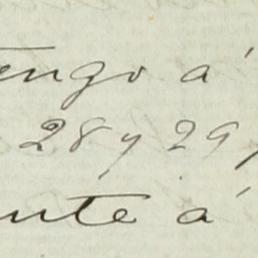 tengo á
28 y 29,
ente á